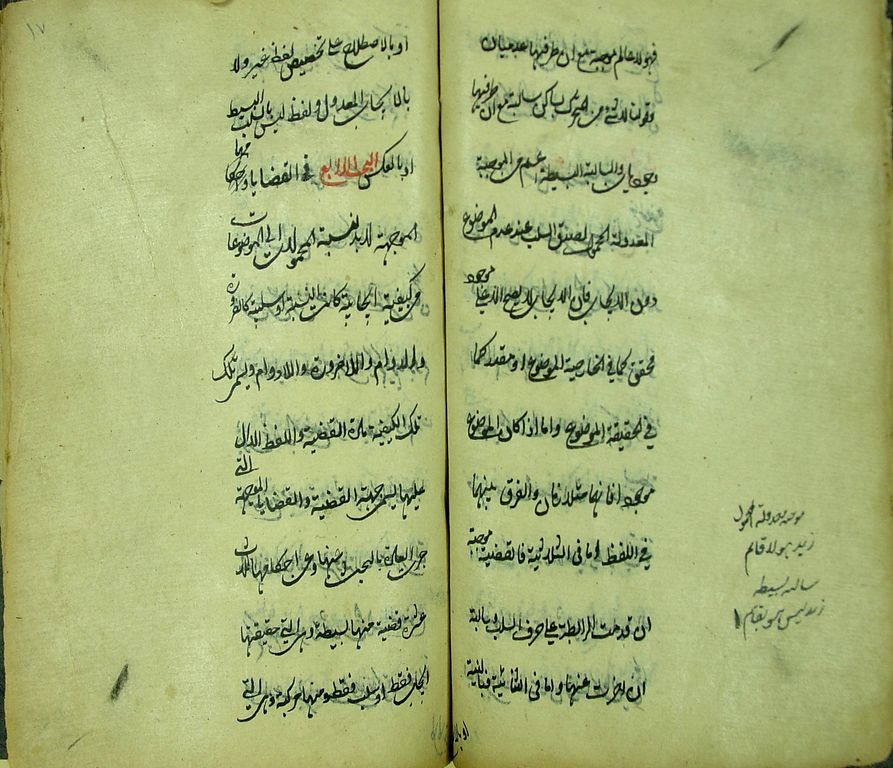 فهو لا عالم موجبة مع ان طرفيها عدميان
وقولنا لا شئ من المتحرك بساكن سالبة مع ان طرفيها
وجوديان والسالبة البسيطة اعم من الموجبة
المعدولة المحمول لصدق السلب عند عدم الموضوع
دون الايجاب فان الايجاب لا يصح الا على موجود
محقق كما في الخارجية الموضوع او مقدر كما
في الحقيقة الموضوع واما اذا كان الموضوع
موجودا فانهما متلازمان والفرق بينهما
في اللفظ اما في الثلاثية فالقضية موجبة
ان قدمت الرابطة على حرف السلب وسالبة
ان اخرت عنها واما في الثنائية فبالنية
موجبه معدولة المحمول
زيد هو لا قائم
سالبه بسيطه
زيد ليس هو بقائم
١٧
او بالاصطلاح على تخصيص لفظ غير ولا
بالايجاب المعدول ولفظ ليس بالسلب البسيط
او بالعكس البحث الرابع في القضايا
الموجهة لا بد لنسبة المحمولات الى الموضوعات
من كيفية ايجابية كانت النسبة او سلبية كالضرورة
والدوام واللاضرورة واللادوام ويسمى تلك
تلك الكيفية مادة القضية واللفظ الدال
عليها يسمى جهة القضية والقضايا الموجهة التي
جرت العادة بالبحث عنها وعن احكامها ثلاث
عشرة قضية منها بسيطة وهي التي حقيقتها
ايجاب فقط او سلب فقط ومنها مركبة وهي التي